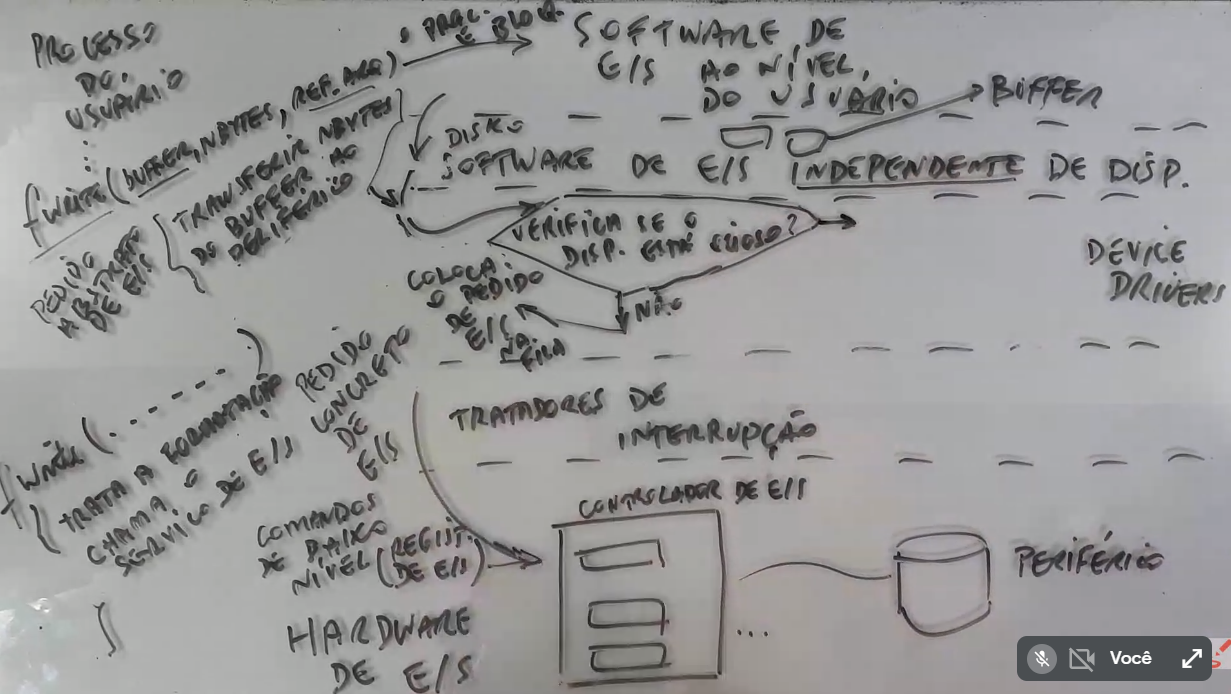 PROCESSO
DO
USUÁRIO
fwrite(BUFFER, NBYTES, REF. ARQ)
O PROC.
E BLOQ.
SOFTWARE DE
E/S AO NÍVEL
DO USUÁRIO
BUFFER
PEDIDO
ABSTRATO
DE E/S
TRANSFERIR NBYTES
DO BUFFER AO
PERIFÉRICO
DISCO
SOFTWARE DE E/S INDEPENDENTE DE DISP.
VERIFICA SE O
DISP. ESTÁ OCIOSO?
NÃO
COLOCA
O PEDIDO
DE
E/S
NA
FILA
DEVICE
DRIVERS
fwrite(.......)
{ TRATA A FORMATAÇÃO
CHAMA O
SERVIÇO DE E/S
}
PEDIDO
CONCRETO
DE
E/S
TRATADORES DE
INTERRUPÇÃO
COMANDOS
DE BAIXO
NÍVEL (REGIST.
DE E/S)
CONTROLADOR DE E/S
...
PERIFÉRICO
HARDWARE
DE E/S
Você